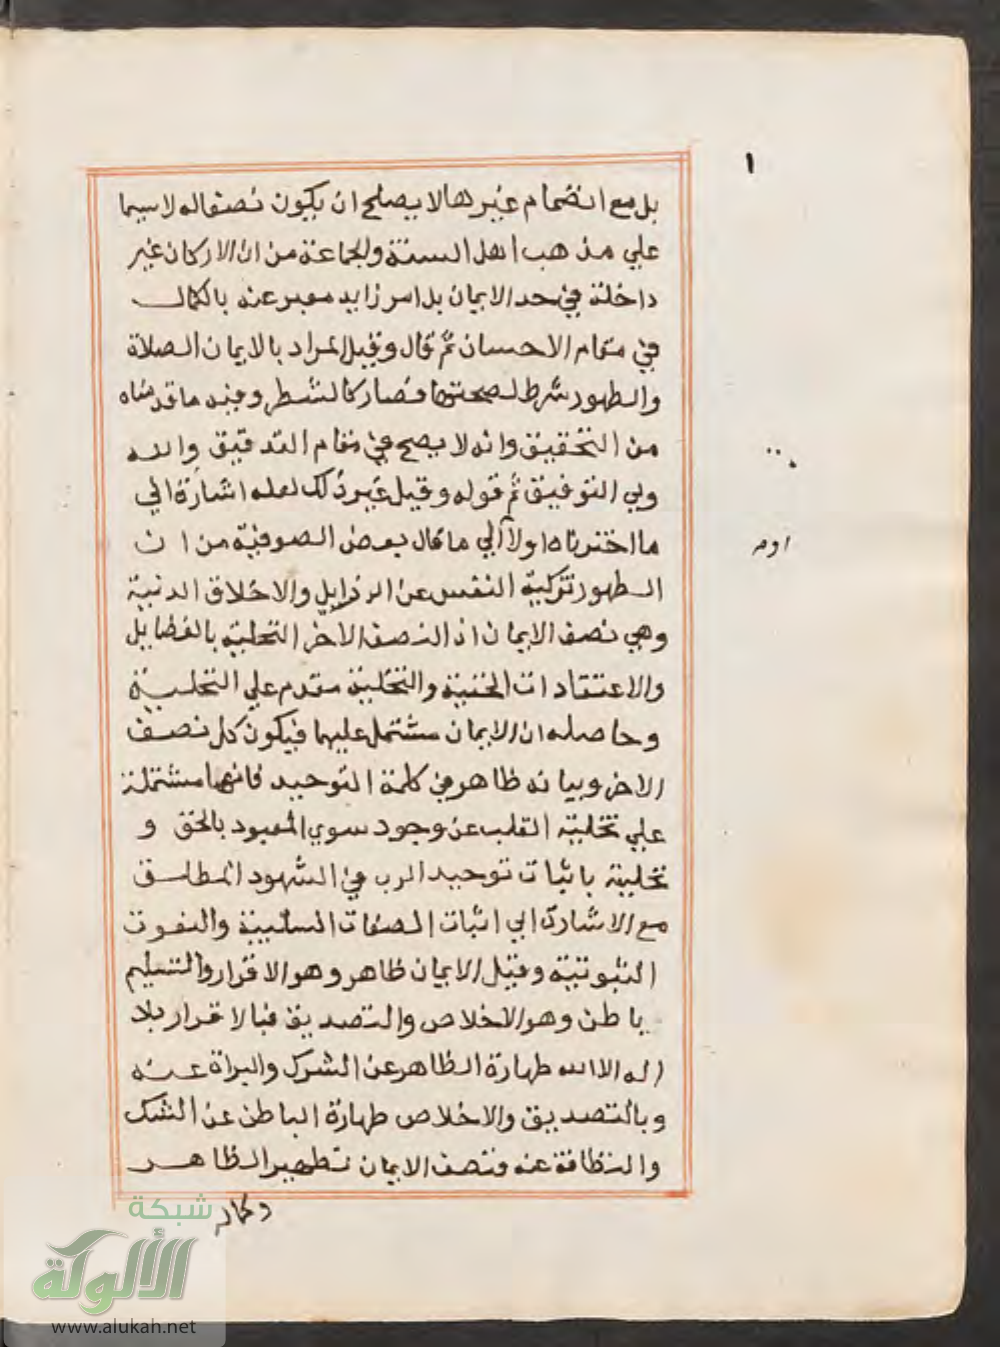 ١
بل مع انضمام غيرها لا يصلح ان يكون نصفا له لا سيما
علي مذهب اهل السنة والجماعة من ان الاركان غير
داخلة في حد الايمان بل امر زايد معبر عنه بالكمال
في مقام الاحسان ثم قال وقيل المراد بالايمان الصلاة
والطهور شرط لصحتها فصار كالشطر وفيه ما قدمناه
من التحقيق وانه لا يصح في مقام التدقيق والله
ولي التوفيق ثم قوله وقيل غير ذلك لعله اشارة الي
ما اخترناه اولا الي ما قال بعض الصوفية من ان
اوم
الطهور تزكية النفس عن الرذايل والاخلاق الدنية
وهي نصف الايمان اذ النصف الاخر التحلية بالفضايل
والاعتقادات الحنيفية والتخلية مقدم علي التحلية
وحاصله ان الايمان مشتمل عليهما فيكون كل نصف
الاخر وبيانه ظاهر في كلمة التوحيد فانهما مشتملة
علي تخلية القلب عن وجود سوي المعبود بالحق و
تحلية باثبات توحيد الرب في الشهود المطلق
مع الاشارة الي اثبات الصفات السلبية والنعوت
الثبوتية وقيل الايمان ظاهر وهو الاقرار والتسليم
باطن وهو الاخلاص والتصديق فبالاقرار بلا
اله الا الله طهارة الظاهر عن الشرك والبراة عنه
وبالتصديق والاخلاص طهارة الباطن عن الشك
والنظافة عنه فنصف الايمان تطهير الظاهر
وكماله
شبكة
الألوكة
www.alukah.net